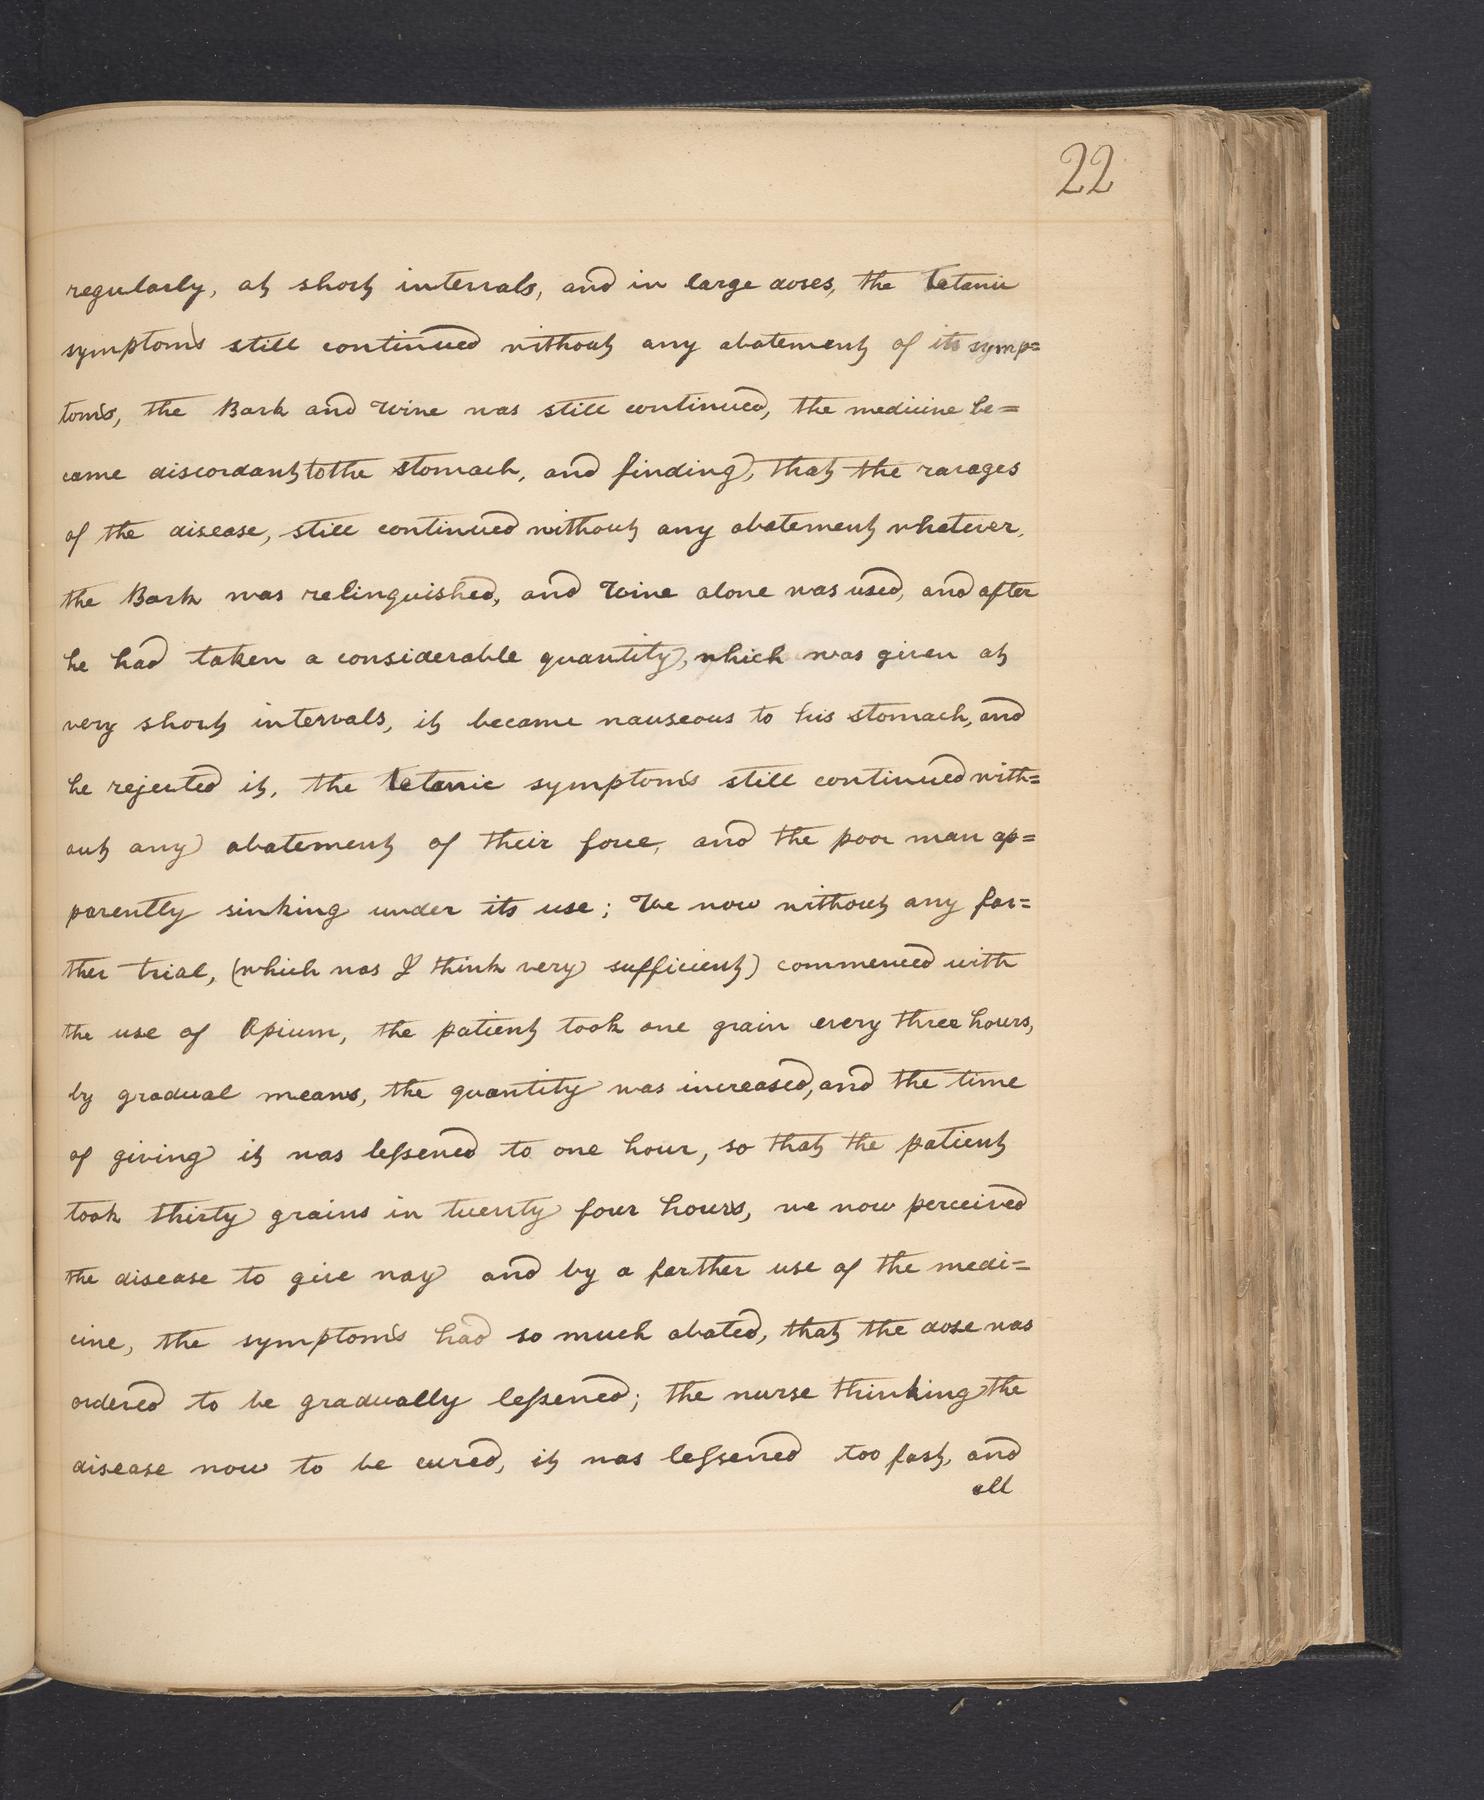 22
regularly, at short intervals, and in large doses, the Tetanic
symptoms still continued without any abatement of its symp=
toms, the Bark and Wine was still continued, the medicine be=
came discordant to the stomach, and finding, that the ravages
of the disease, still continued without any abatement whatever.
the Bark was relinquished, and Wine alone was used, and after
he had taken a considerable quantity, which was given at
very short intervals, it became nauseous to his stomach, and
he rejected it, the Tetanic symptoms still continued with=
out any abatement of their force, and the poor man ap=
parently sinking under its use; We now without any far=
ther trial, (which was I think very sufficient) commenced with
the use of Opium, the patient took one grain every three hours,
by gradual means, the quantity was increased, and the time
of giving it was leſsened to one hour, so that the patient
took thirty grains in twenty four hours, we now perceived
the disease to give way and by a farther use of the medi=
cine, the symptoms had so much abated, that the dose was
ordered to be gradually leſsened; the nurse thinking the
disease now to be cured, it was leſsened too fast, and
all